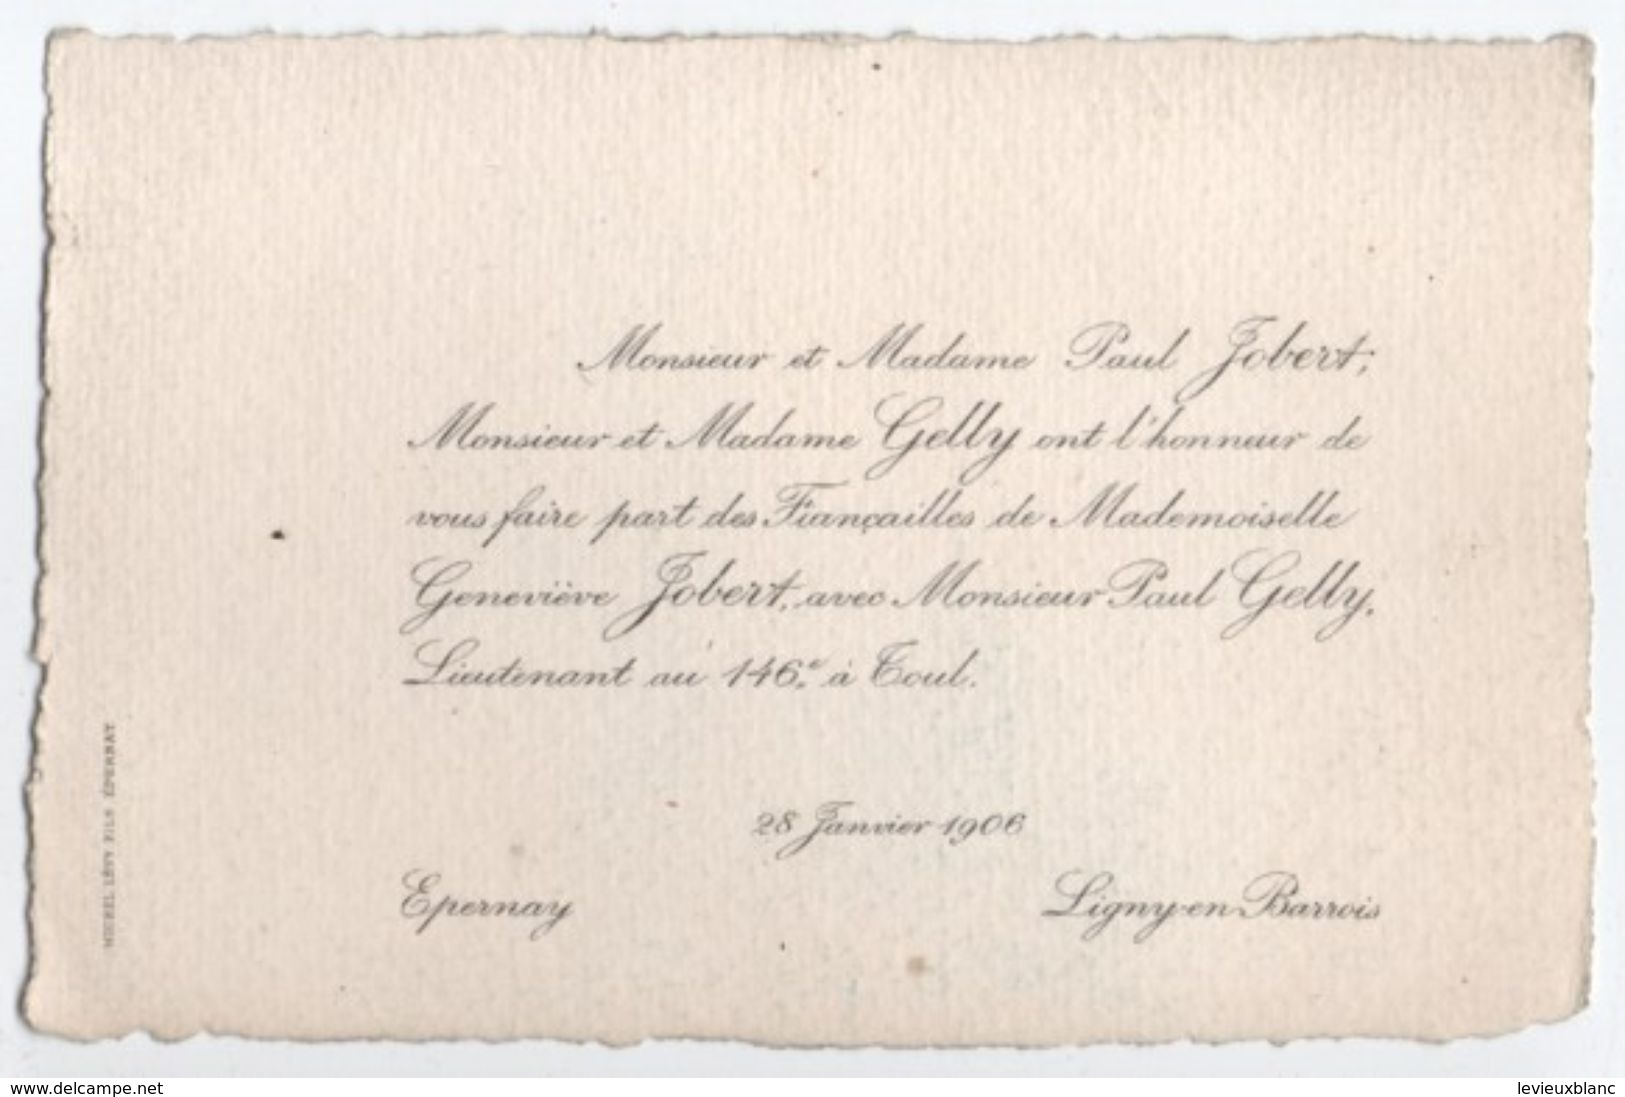 Monsieur et Madame Paul Jobert;
Monsieur et Madame Gelly ont l'honneur de
vous faire part des Fiançailles de Mademoiselle
Geneviève Jobert, avec Monsieur Paul Gelly,
Lieutenant au 146e. à Toul.
28 Janvier 1906
Epernay
Ligny-en-Barrois
MICHEL LÉVY FILS ÉPERNAY
www.delcampe.net
levieuxblanc